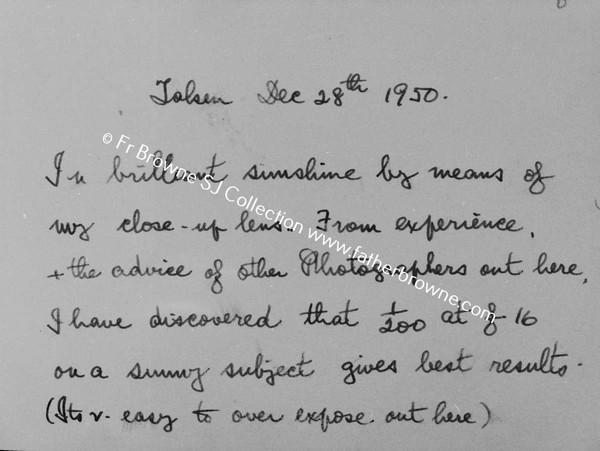 Taken Dec 28th 1950.
In brilliant sunshine by means of
my close-up lens. From experience,
+ the advice of other Photographers out here,
I have discovered that 1/200 at f 16
on a sunny subject gives best results.
(Its v. easy to over expose out here)
© Fr Browne SJ Collection www.fatherbrowne.com